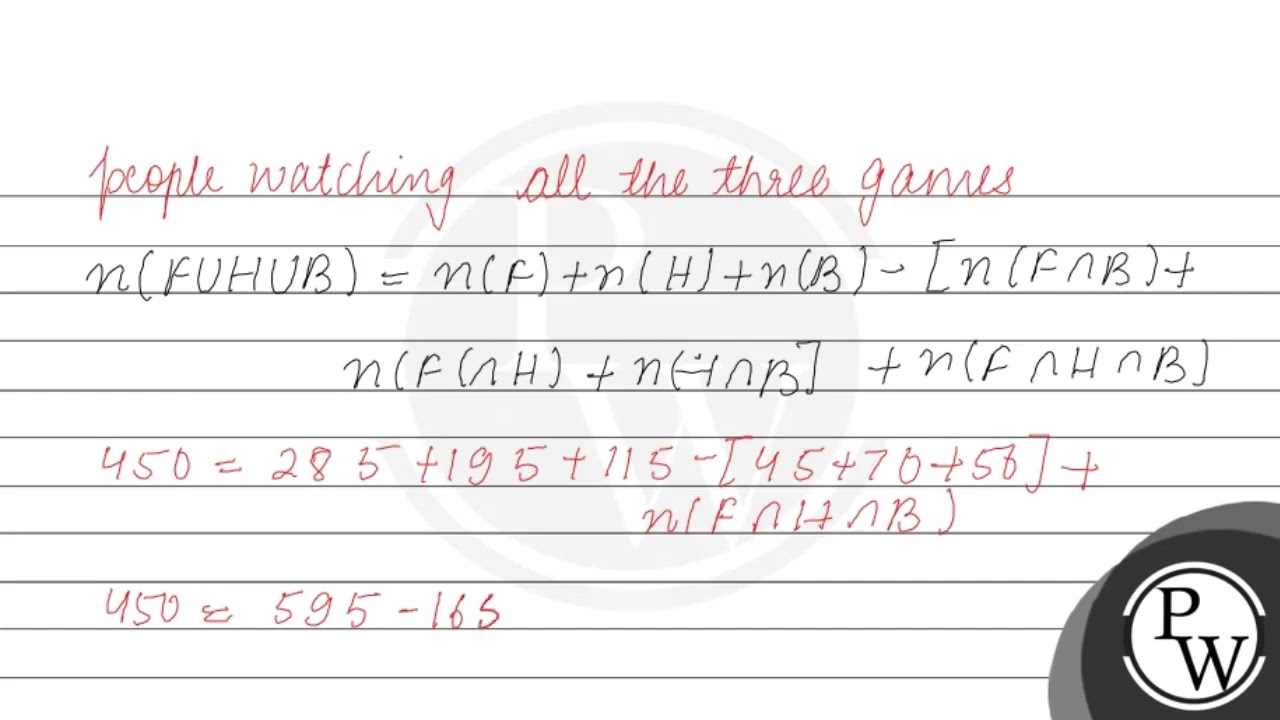 people watching all the three games
n(FUHUB) = n(F) + n(H) + n(B) - [n(F∩B) +
n(F(∩H) + n(H∩B] + n(F∩H∩B)
450 = 285 + 195 + 115 - [45 + 70 + 50] +
n(F∩H∩B)
450 = 595 - 165
P
W